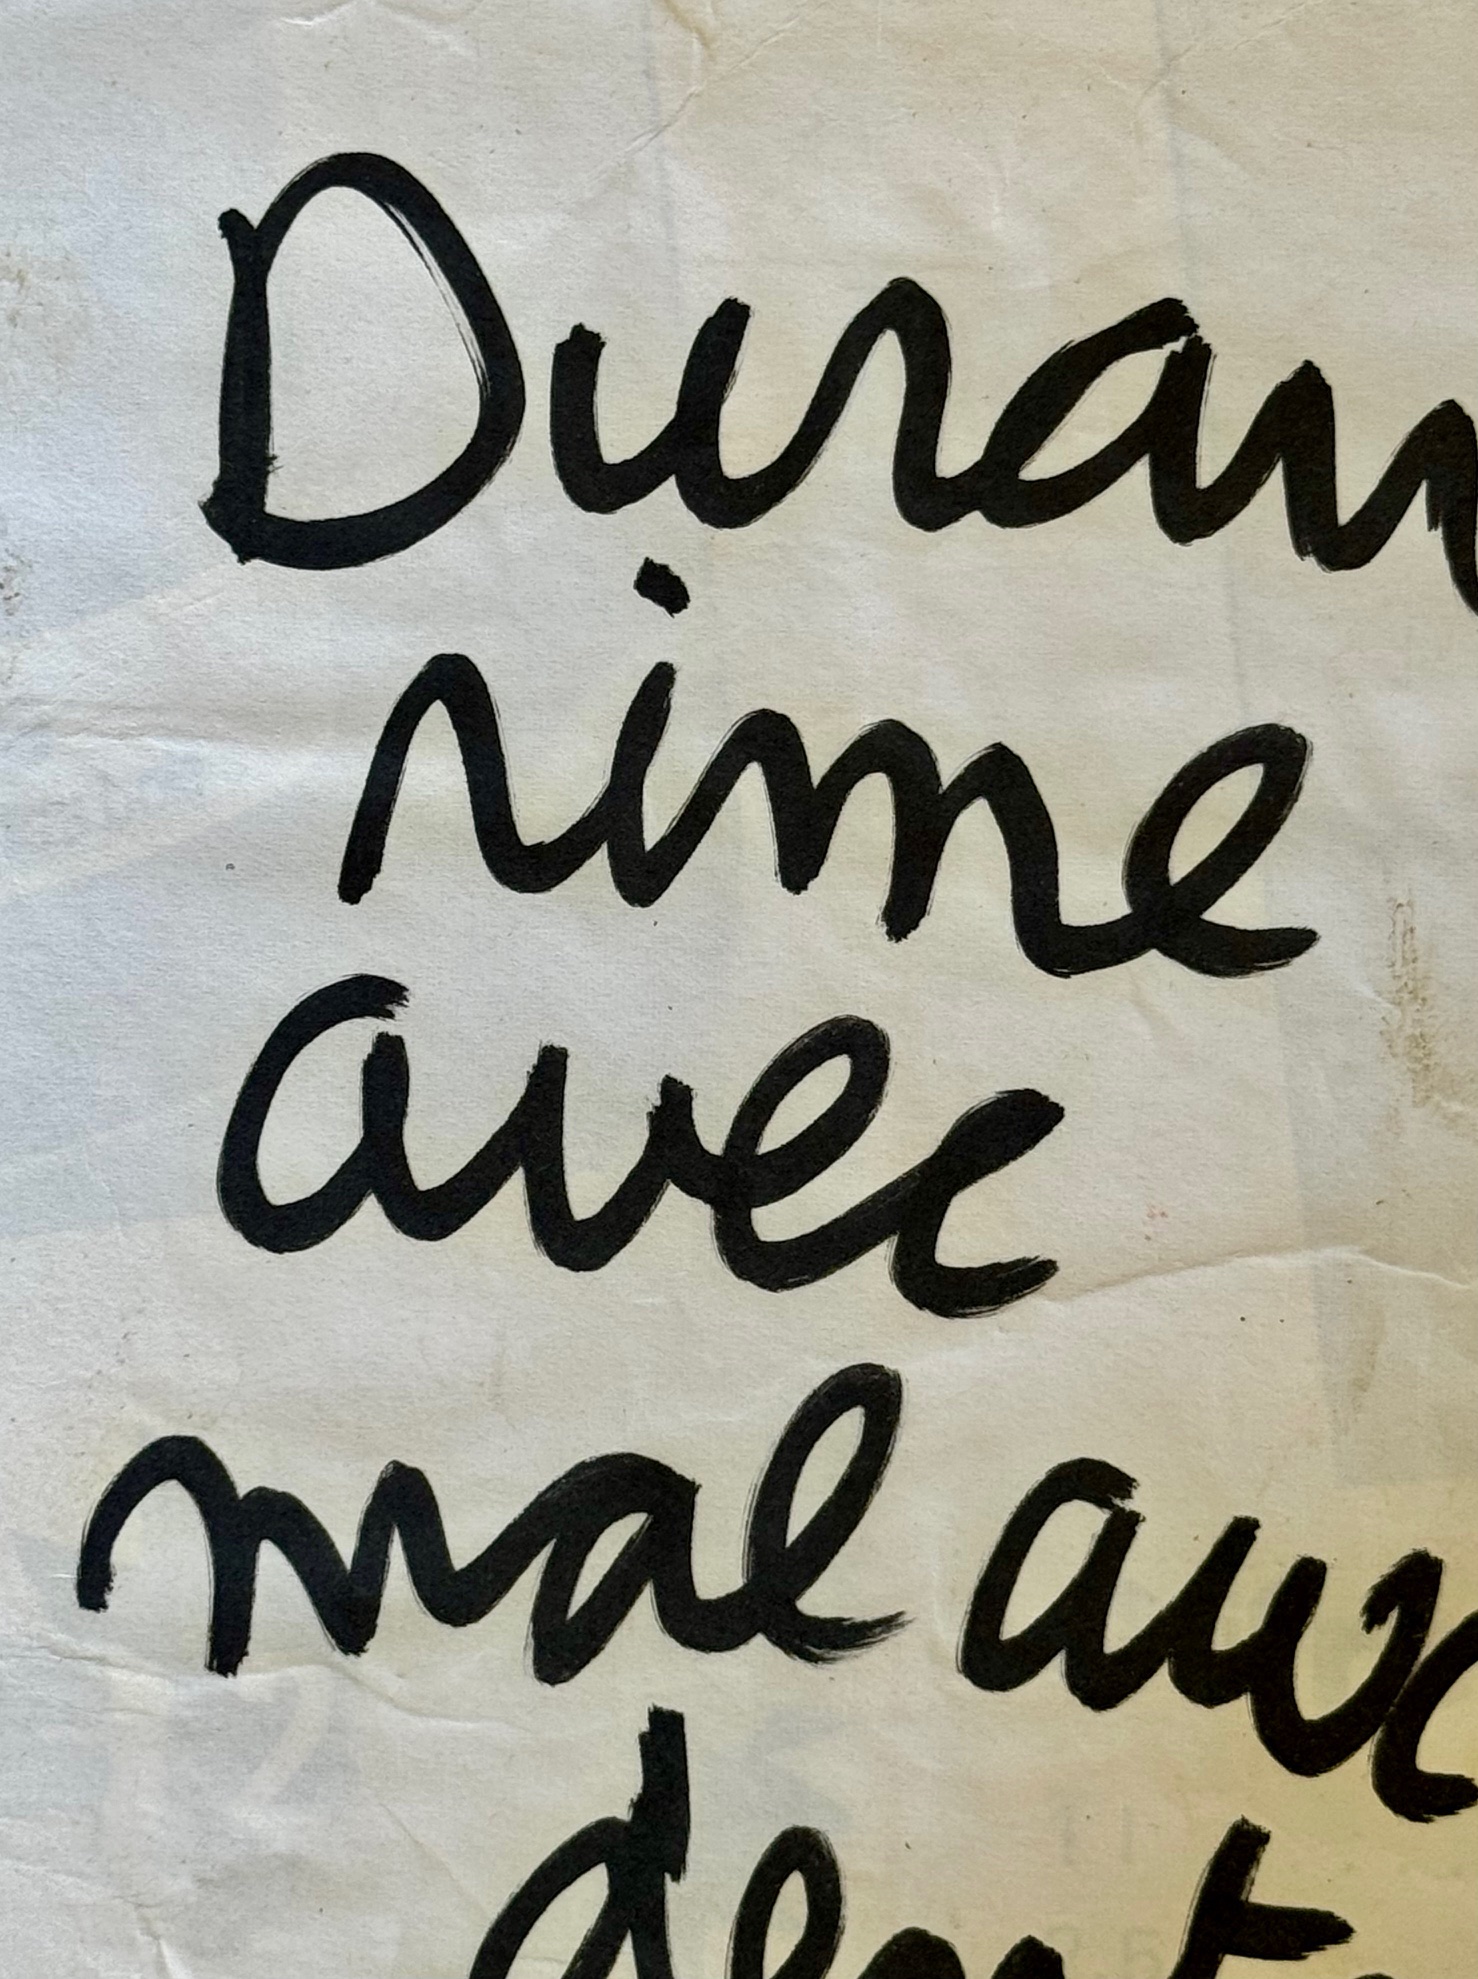 Duran
rime
avec
mal avec
dent